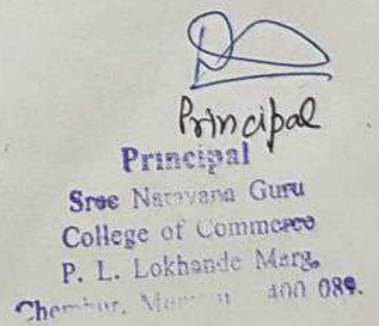 Principal
Principal
Sree Narayana Guru
College of Commerce
P. L. Lokhande Marg,
Chembur, Mumbai 400 089.